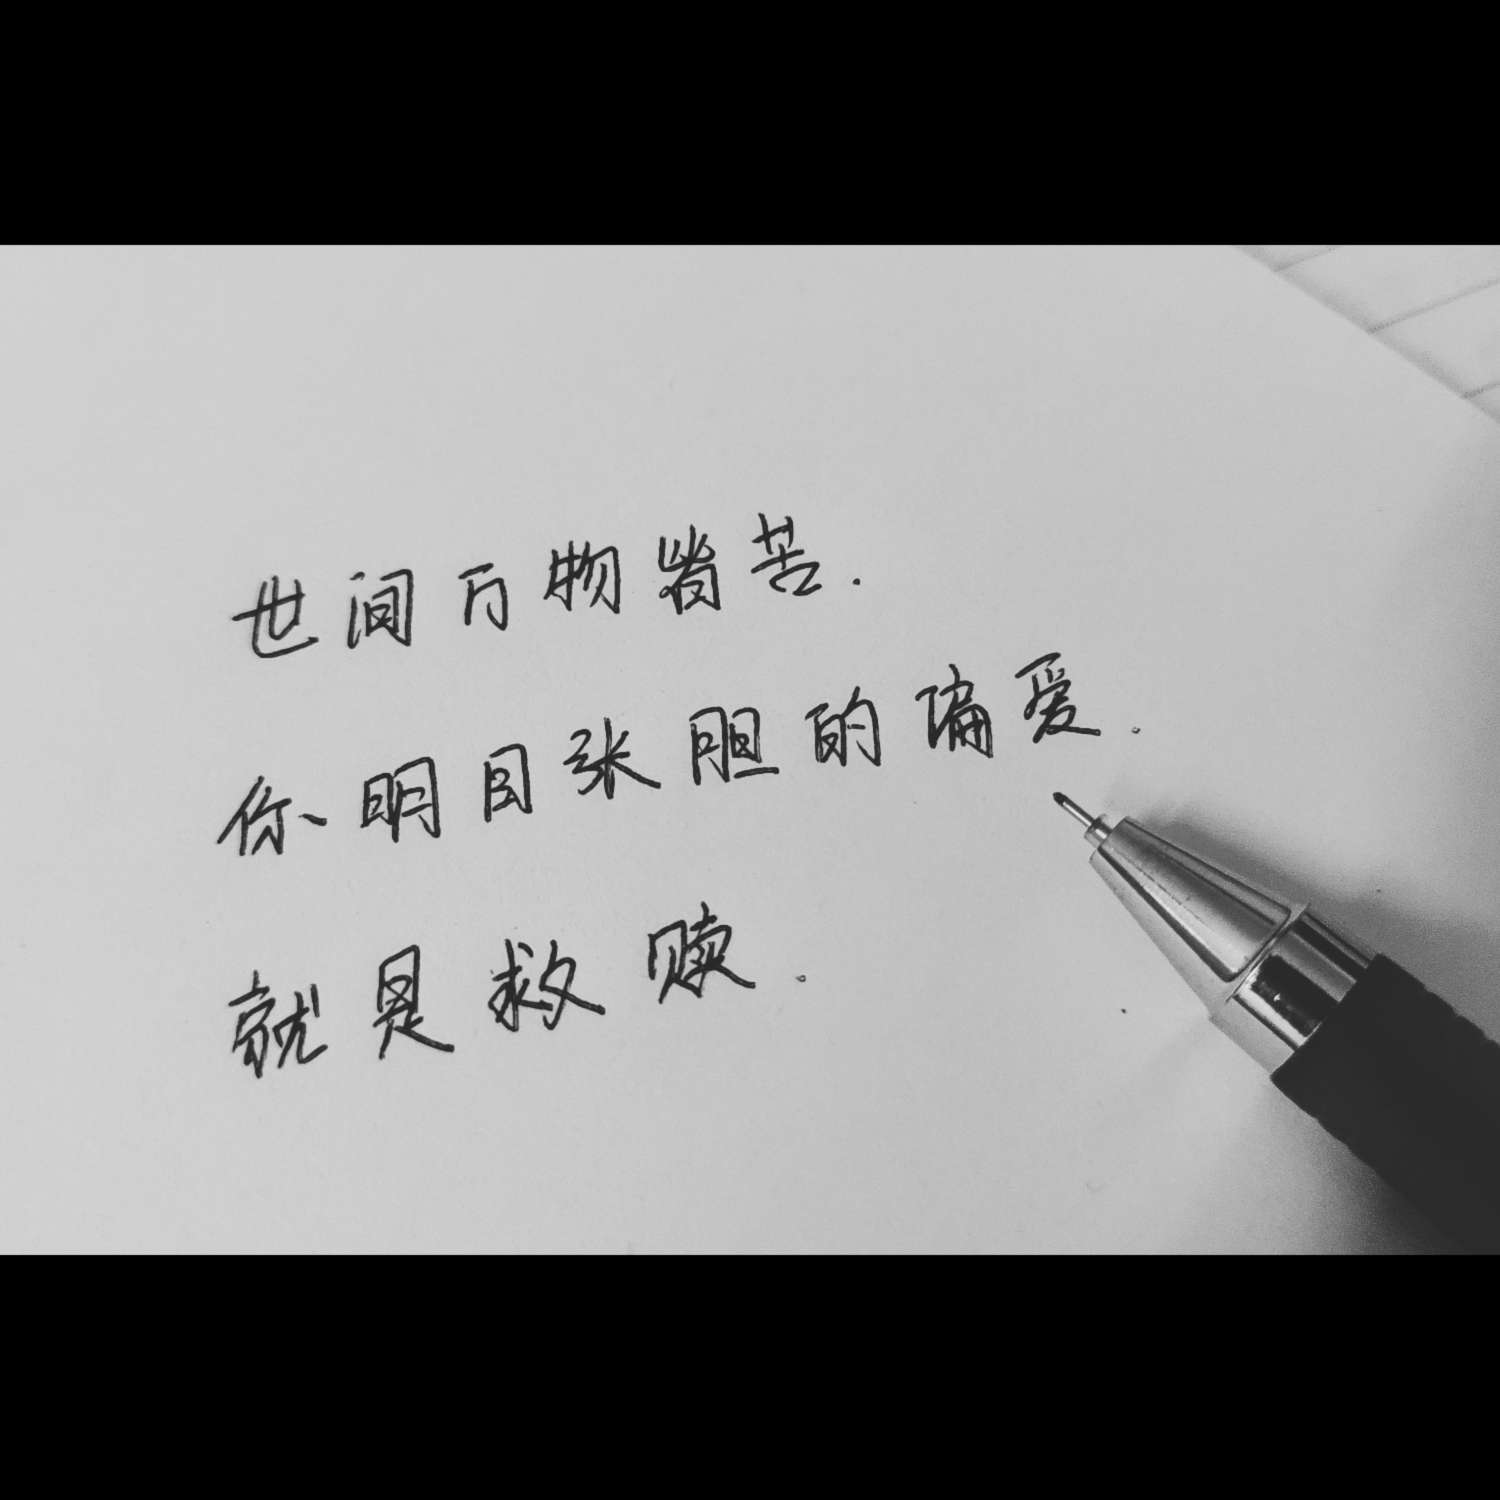 世间万物皆苦.
你明目张胆的偏爱.
就是救赎.